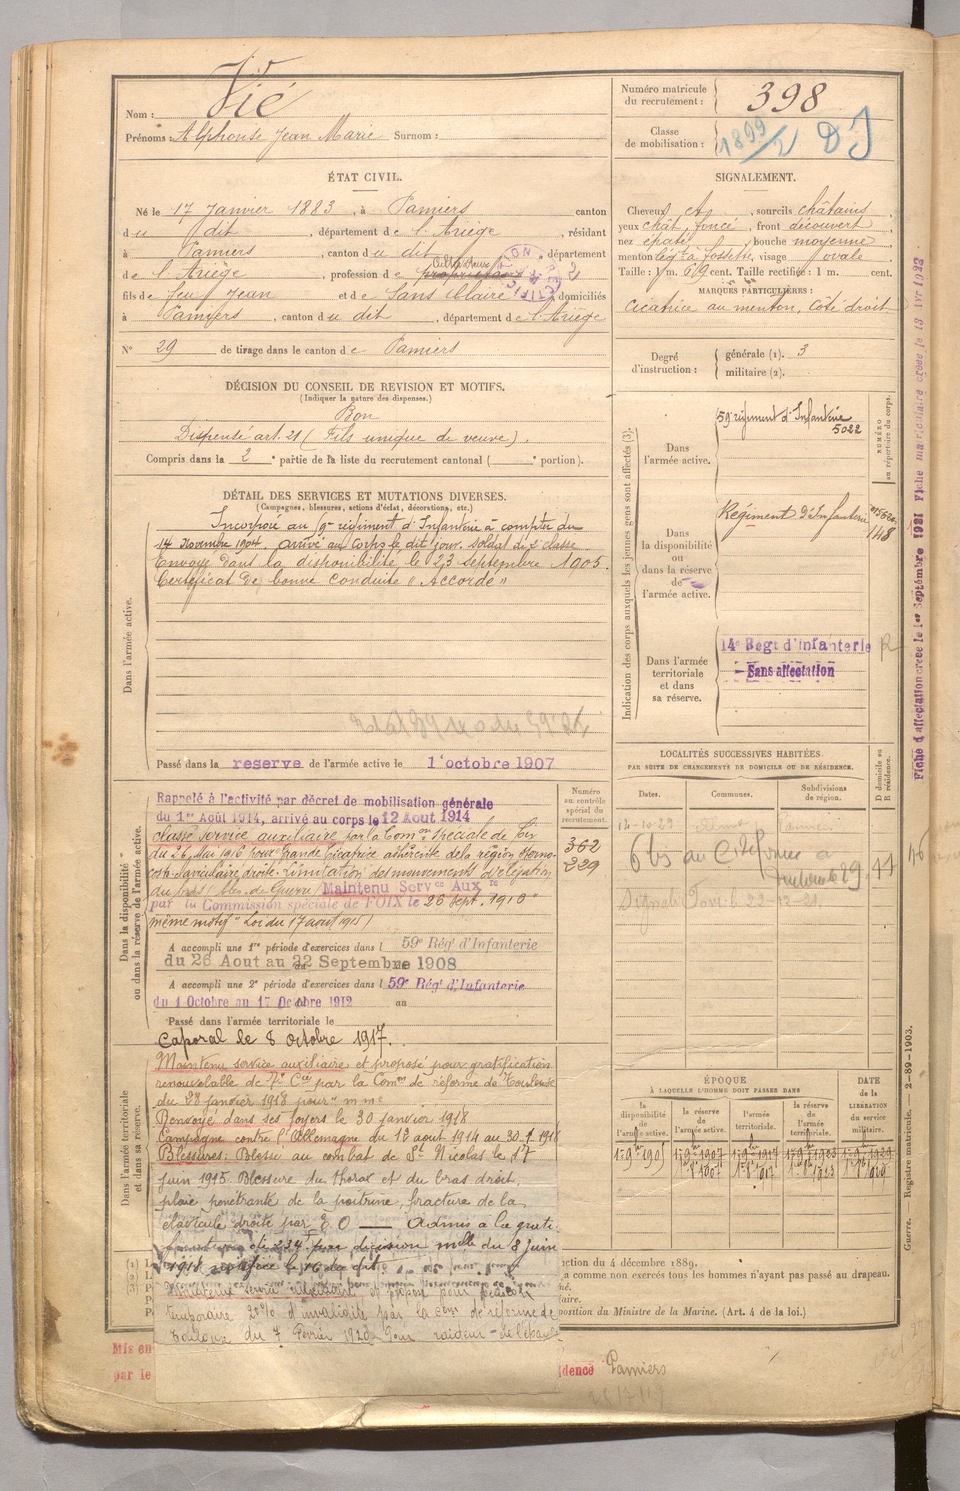 Nom : Vié
Prénoms : Alphonse Jean Marie Surnom :
Numéro matricule du recrutement : 398
Classe de mobilisation : 1899/2 DJ
ÉTAT CIVIL.
Né le 17 Janvier 1883, à Pamiers canton
du dit, département de l'Ariège, résidant
à Pamiers, canton du dit, département
de l'Ariège, profession de Cultivateur
fils de feu Jean et de Sans Claire, domiciliés
à Pamiers, canton du dit, département de l'Ariège
N° 29 de tirage dans le canton de Pamiers
SIGNALEMENT.
Cheveux ch, sourcils châtains,
yeux chât. foncé, front découvert,
nez épaté, bouche moyenne,
menton à fossette, visage ovale.
Taille : 1 m. 69 cent. Taille rectifiée : 1 m. cent.
MARQUES PARTICULIÈRES :
Cicatrice au menton, côté droit
Degré d'instruction :
générale (1). 3
militaire (2).
DÉCISION DU CONSEIL DE REVISION ET MOTIFS.
(Indiquer la nature des dispenses.)
Bon
Dispensé art. 21 (Fils unique de veuve).
Compris dans la 2e partie de la liste du recrutement cantonal ( e portion).
DÉTAIL DES SERVICES ET MUTATIONS DIVERSES.
(Campagnes, blessures, actions d'éclat, décorations, etc.)
Dans l'armée active.
Incorporé au 59e régiment d'Infanterie à compter du
14 Novembre 1904. arrivé au corps le dit jour. soldat de 2e classe
Envoyé dans la disponibilité le 23 septembre 1905.
Certificat de bonne conduite « Accordé »
Passé dans la réserve de l'armée active le 1er octobre 1907
Indication des corps auxquels les jeunes gens sont affectés (3).
NUMÉRO au répertoire du corps.
Dans l'armée active.
59 régiment d'Infanterie
5022
Dans la disponibilité ou dans la réserve de l'armée active.
Régiment d'Infanterie
148
Dans l'armée territoriale et dans sa réserve.
14e Régt d'Infanterie
Sans affectation
Fiche d'affectation créée le 1er Septembre 1921 Fiche matriculaire créée le 13 Avr 1922
LOCALITÉS SUCCESSIVES HABITÉES
PAR SUITE DE CHANGEMENTS DE DOMICILE OU DE RÉSIDENCE.
Dates.
Communes.
Subdivisions de région.
D domicile ou R résidence.
Dans la disponibilité ou dans la réserve de l'armée active.
Numéro au contrôle spécial du recrutement.
362
229
Rappelé à l'activité par décret de mobilisation générale
du 1er Août 1914, arrivé au corps le 12 Aout 1914
classé service auxiliaire par la Comon spéciale de Foix
du 26 Mai 1916 pour "Grande Cicatrice adhérente de la région sterno-
claviculaire droite. Limitation des mouvements d'élévation
du bras (bles. de Guerre) Maintenu Servce Auxre
par la Commission spéciale de FOIX le 26 Sept. 1916
même motif" Loi du 17 aout 1915)
A accompli une 1re période d'exercices dans l 59e Rég' d'Infanterie
du 26 Aout au 22 Septembre 1908
A accompli une 2e période d'exercices dans l 59e Rég' d'Infanterie
du 1 Octobre au 17 Octobre 1912 au
Passé dans l'armée territoriale le
Caporal le 8 octobre 1917.
Dans l'armée territoriale et dans sa réserve.
Maintenu service auxiliaire et proposé pour gratification
renouvelable de 7e Cie par la Comon de réforme de Toulouse
du 28 janvier 1918 pour
Renvoyé dans ses foyers le 30 janvier 1918
Campagne contre l'Allemagne du 12 aout 1914 au 30.1.1918
Blessures : Blessé au combat de St Nicolas le 17
juin 1915. Blessure du thorax et du bras droit,
plaie pénétrante de la poitrine, fracture de la
clavicule droite par E O — Admis à la grati-
de 234f par décision mlle du 8 juin
1918
temporaire 20% d'invalidité par la Com. de réforme de
Toulouse du 7 Février 1920 pour raideur de l'épaule
ÉPOQUE
À LAQUELLE L'HOMME DOIT PASSER DANS
la disponibilité de l'armée active.
la réserve de l'armée active.
l'armée territoriale.
la réserve de l'armée territoriale.
DATE de la LIBÉRATION du service militaire.
Guerre. — Registre matricule. — 2-89-1903.
ction du 4 décembre 1889.
a comme non exercés tous les hommes n'ayant pas passé au drapeau.
position du Ministre de la Marine. (Art. 4 de la loi.)
Mis en
par le
dence Pamiers